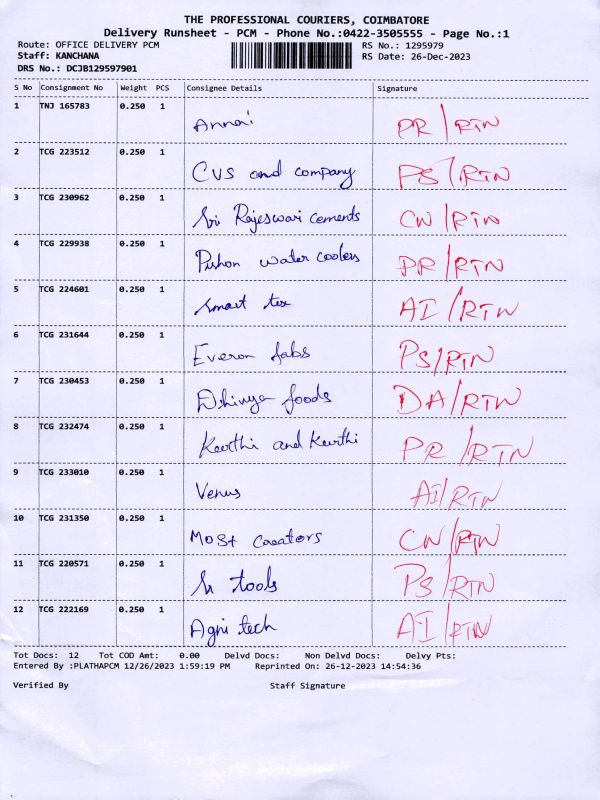 THE PROFESSIONAL COURIERS, COIMBATORE
Delivery Runsheet - PCM - Phone No.:0422-3505555 - Page No.:1
Route: OFFICE DELIVERY PCM RS No.: 1295979
Staff: KANCHANA RS Date: 26-Dec-2023
DRS No.: DCJB129597901
S No Consignment No Weight PCS Consignee Details Signature
1 TNJ 165783 0.250 1 Annai PR/RTN
2 TCG 223512 0.250 1 CVS and company PS/RTN
3 TCG 230962 0.250 1 Sri Rajeswari cements CW/RTN
4 TCG 229938 0.250 1 water coolers PR/RTN
5 TCG 224601 0.250 1 Smart tex AI/RTN
6 TCG 231644 0.250 1 Everon fabs PS/RTN
7 TCG 230453 0.250 1 Dhivya foods DA/RTN
8 TCG 232474 0.250 1 Keerthi and Keerthi PR/RTN
9 TCG 233010 0.250 1 Venus AI/RTN
10 TCG 231350 0.250 1 Most Creators CW/RTN
11 TCG 220571 0.250 1 tools PS/RTN
12 TCG 222169 0.250 1 Agni tech AI/RTN
Tot Docs: 12 Tot COD Amt: 0.00 Delvd Docs: Non Delvd Docs: Delvy Pts:
Entered By :PLATHAPCM 12/26/2023 1:59:19 PM Reprinted On: 26-12-2023 14:54:36
Verified By Staff Signature